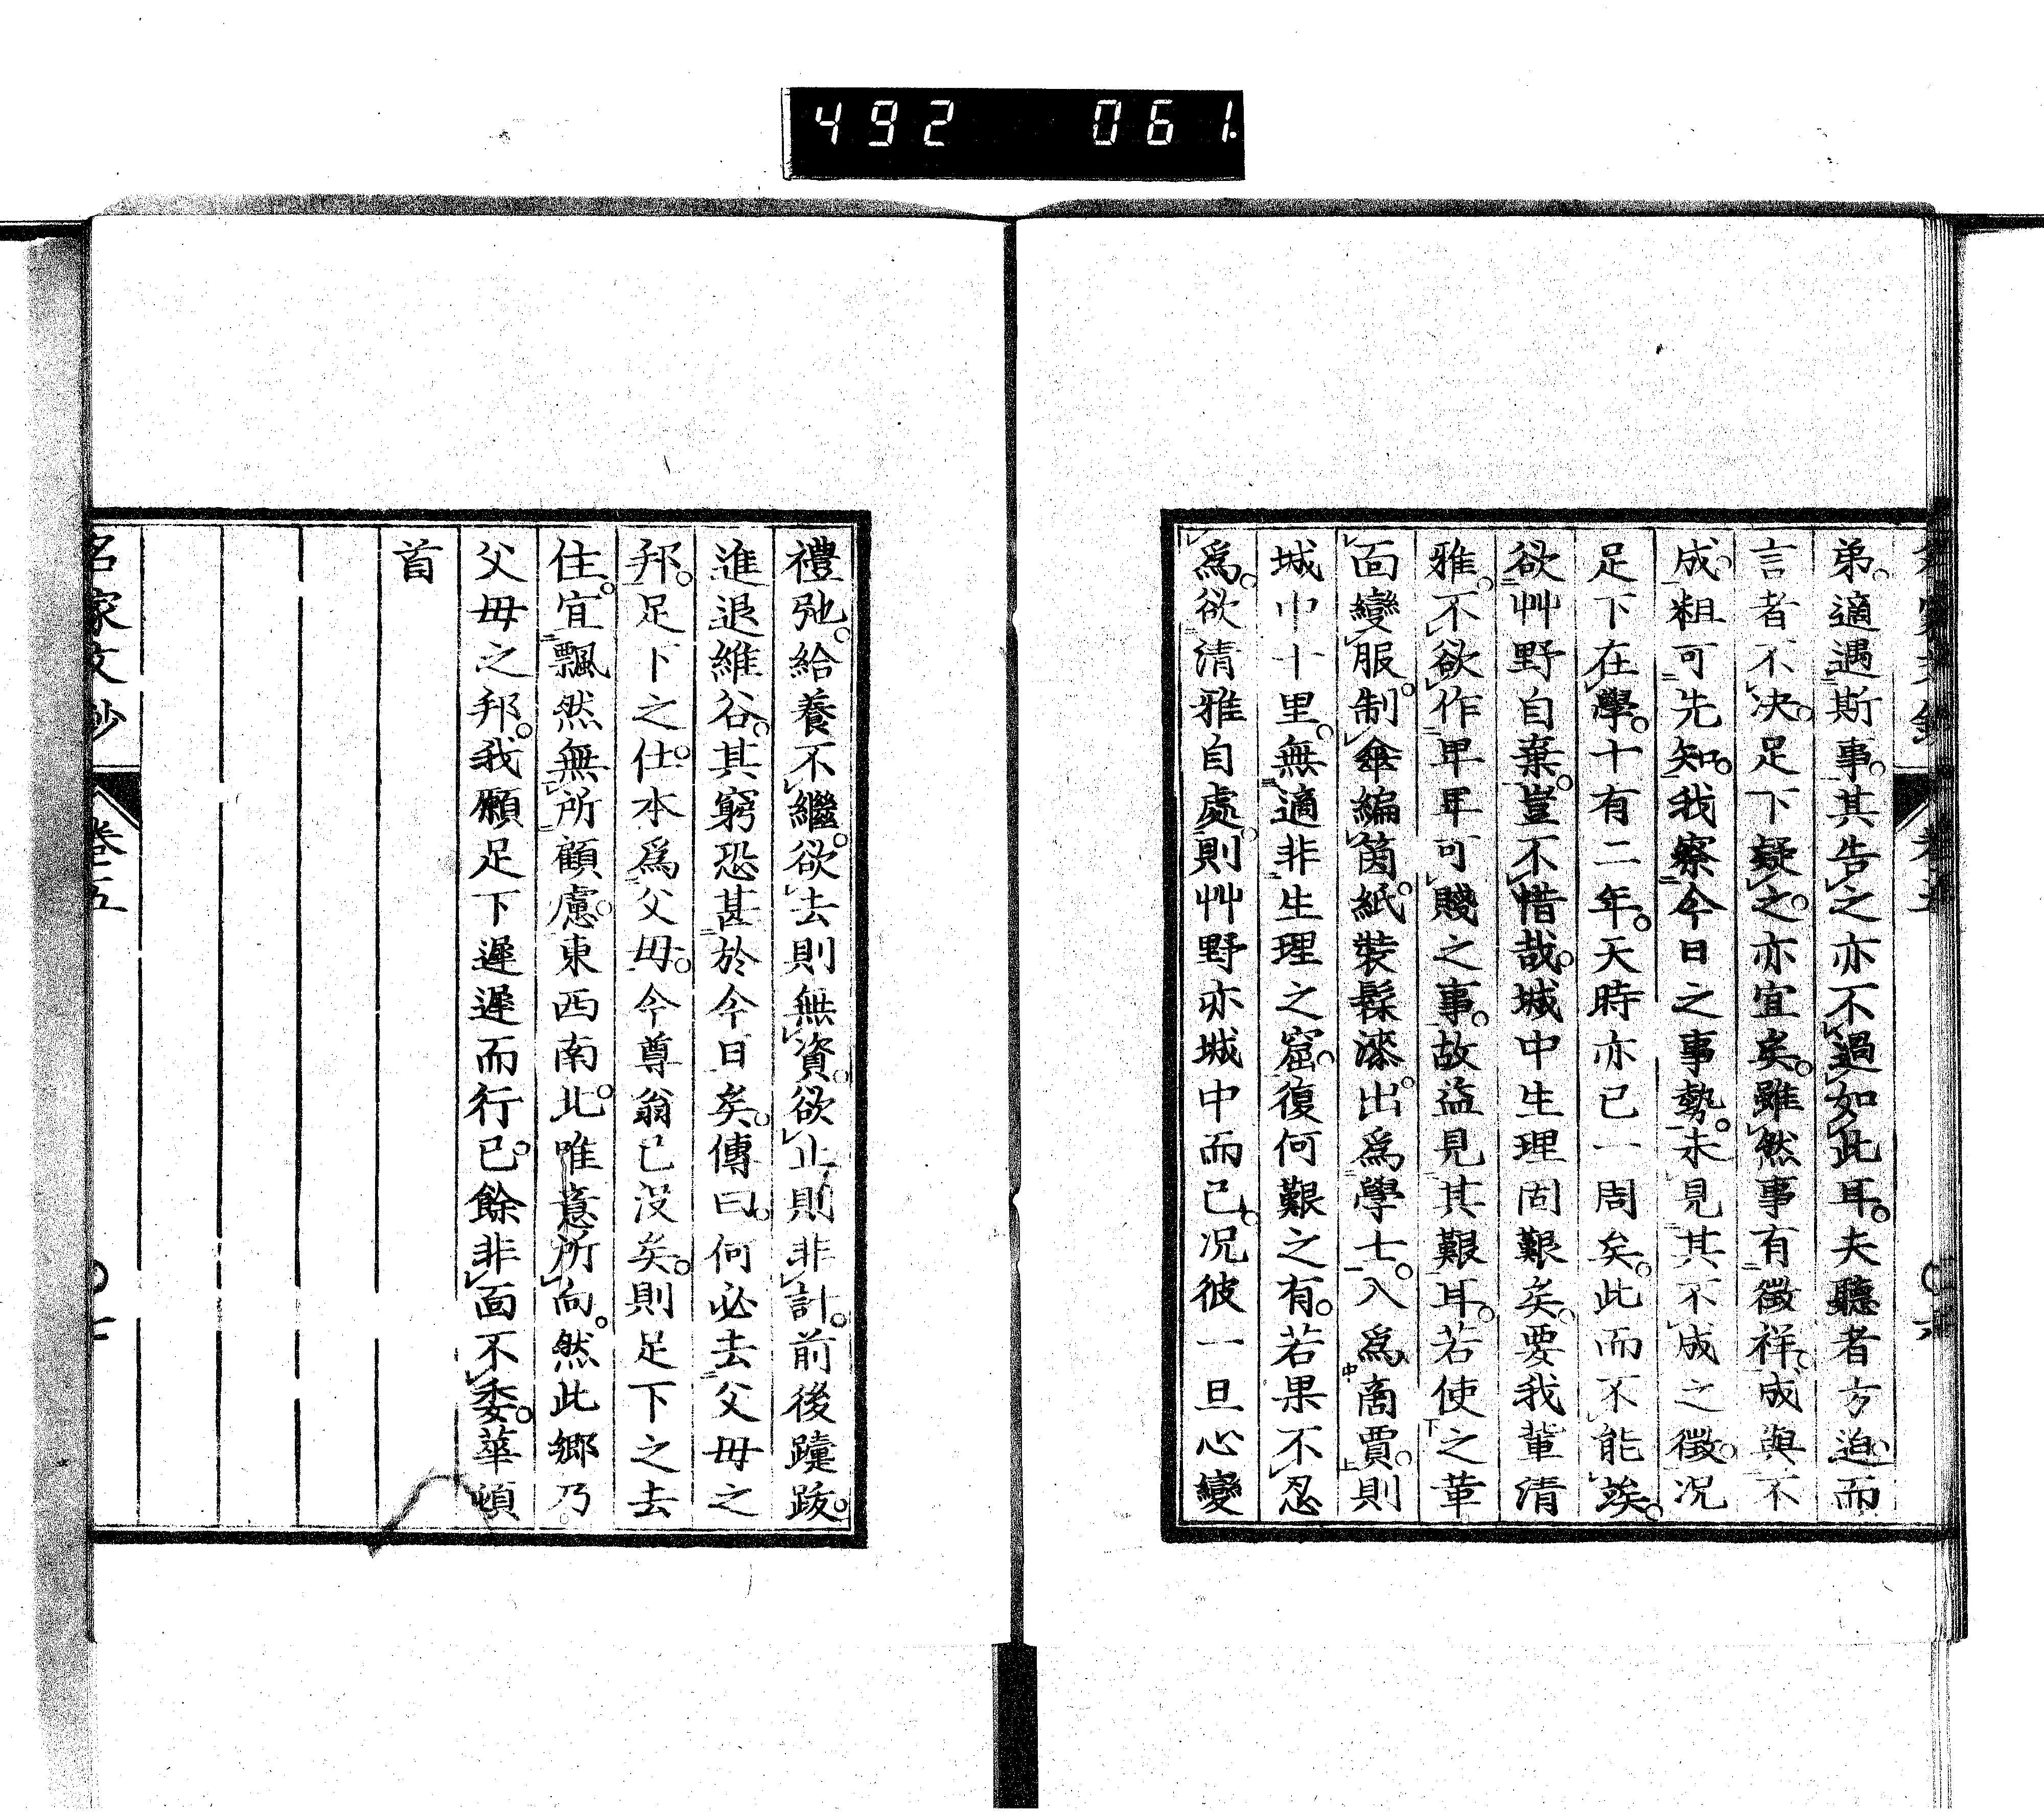 492 061.
弟。適遇斯事。其告之亦不過如此耳。夫聽者方迫。而
言者不決。足下疑之。亦宜矣。雖然事有徵祥。成與不
成。粗可先知。我察今日之事勢。未見其不成之徵。況
足下在學。十有二年。天時亦已一周矣。此而不能竢。
欲艸野自棄。豈不惜哉。城中生理固艱矣。要我輩清
雅。不欲作卑卑可賤之事。故益見其艱耳。若使之革
面變服。制傘編箇。紙裝髹漆。出爲學士。入爲商賈。則
城中十里。無適非生理之窟。復何艱之有。若果不忍
爲。欲清雅自處。則艸野亦城中而已。況彼一旦心變
禮弛。給養不繼。欲去則無資。欲止則非計。前後躓跋。
進退維谷。其窮恐甚於今日矣。傳曰。何必去父母之
邦。足下之仕。本爲父母。今尊翁已沒矣。則足下之去
住。宜飄然無所顧慮。東西南北。唯意所向。然此鄉乃
父母之邦。我願足下遲遲而行已。餘非面不委。華頓
首
名家文鈔 卷五